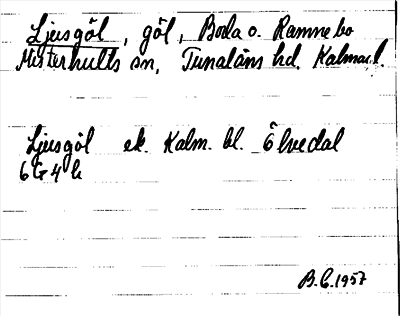 Ljusgöl, göl, Boda o. Ramnebo
Misterhults sn, Tunaläns hd. Kalmar l.
Ljusgöl ek. Kalm. bl. Ölvedal
6 G 4 h
B.C. 1957